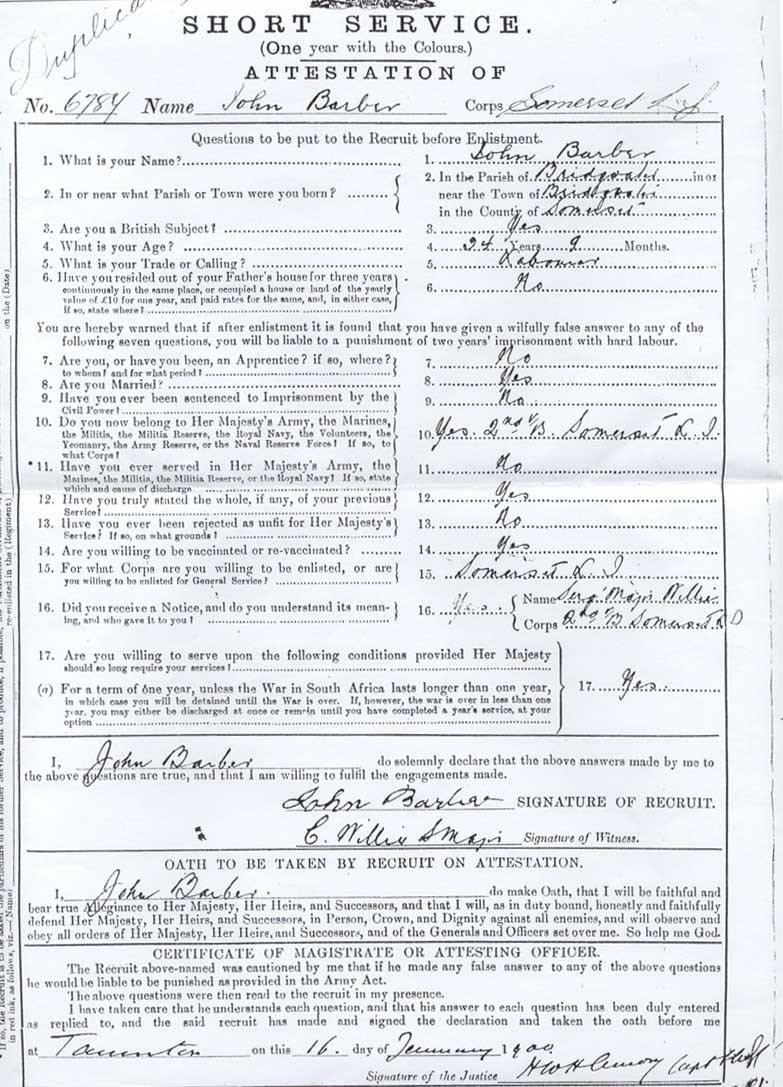 Duplicate
SHORT SERVICE.
(One year with the Colours.)
ATTESTATION OF
No. 6784 Name John Barber Corps Somerset L.I.
Questions to be put to the Recruit before Enlistment.
1. What is your Name? 1. John Barber
2. In or near what Parish or Town were you born? 2. In the Parish of Bridgwater in or
near the Town of Bridgwater
in the County of Somerset
3. Are you a British Subject? 3. Yes
4. What is your Age? 4. 24 Years 9 Months.
5. What is your Trade or Calling? 5. Labourer
6. Have you resided out of your Father's house for three years
continuously in the same place, or occupied a house or land of the yearly
value of £10 for one year, and paid rates for the same, and, in either case,
if so, state where? 6. No
You are hereby warned that if after enlistment it is found that you have given a wilfully false answer to any of the
following seven questions, you will be liable to a punishment of two years' imprisonment with hard labour.
7. Are you, or have you been, an Apprentice? if so, where?
to whom? and for what period? 7. No
8. Are you Married? 8. Yes
9. Have you ever been sentenced to Imprisonment by the
Civil Power? 9. No.
10. Do you now belong to Her Majesty's Army, the Marines,
the Militia, the Militia Reserve, the Royal Navy, the Volunteers, the
Yeomanry, the Army Reserve, or the Naval Reserve Force? If so, to
what Corps? 10. Yes. 2nd V.B. Somerset L.I.
*11. Have you ever served in Her Majesty's Army, the
Marines, the Militia, the Militia Reserve, or the Royal Navy? If so, state
which and cause of discharge 11. No
12. Have you truly stated the whole, if any, of your previous
Service? 12. Yes
13. Have you ever been rejected as unfit for Her Majesty's
Service? If so, on what grounds? 13. No
14. Are you willing to be vaccinated or re-vaccinated? 14. Yes
15. For what Corps are you willing to be enlisted, or are
you willing to be enlisted for General Service? 15. Somerset L.I
16. Did you receive a Notice, and do you understand its mean-
ing, and who gave it to you? 16. Yes. Name Serg. Major Willis
Corps 2nd V.B Somerset L.I
17. Are you willing to serve upon the following conditions provided Her Majesty
should so long require your services?
(a) For a term of one year, unless the War in South Africa lasts longer than one year,
in which case you will be detained until the War is over. If, however, the war is over in less than one
year, you may either be discharged at once or remain until you have completed a year's service, at your
option 17. Yes.
I, John Barber do solemnly declare that the above answers made by me to
the above questions are true, and that I am willing to fulfil the engagements made.
John Barber SIGNATURE OF RECRUIT.
C. Willis S Major Signature of Witness.
OATH TO BE TAKEN BY RECRUIT ON ATTESTATION.
I, John Barber. do make Oath, that I will be faithful and
bear true Allegiance to Her Majesty, Her Heirs, and Successors, and that I will, as in duty bound, honestly and faithfully
defend Her Majesty, Her Heirs, and Successors, in Person, Crown, and Dignity against all enemies, and will observe and
obey all orders of Her Majesty, Her Heirs, and Successors, and of the Generals and Officers set over me. So help me God.
CERTIFICATE OF MAGISTRATE OR ATTESTING OFFICER.
The Recruit above-named was cautioned by me that if he made any false answer to any of the above questions
he would be liable to be punished as provided in the Army Act.
The above questions were then read to the recruit in my presence.
I have taken care that he understands each question, and that his answer to each question has been duly entered
as replied to, and the said recruit has made and signed the declaration and taken the oath before me
at Taunton on this 16. day of January 1900
Signature of the Justice Capt
on the (Date)
re-enlisted in the (Regiment)
in red ink, as follows, viz.—(Name)